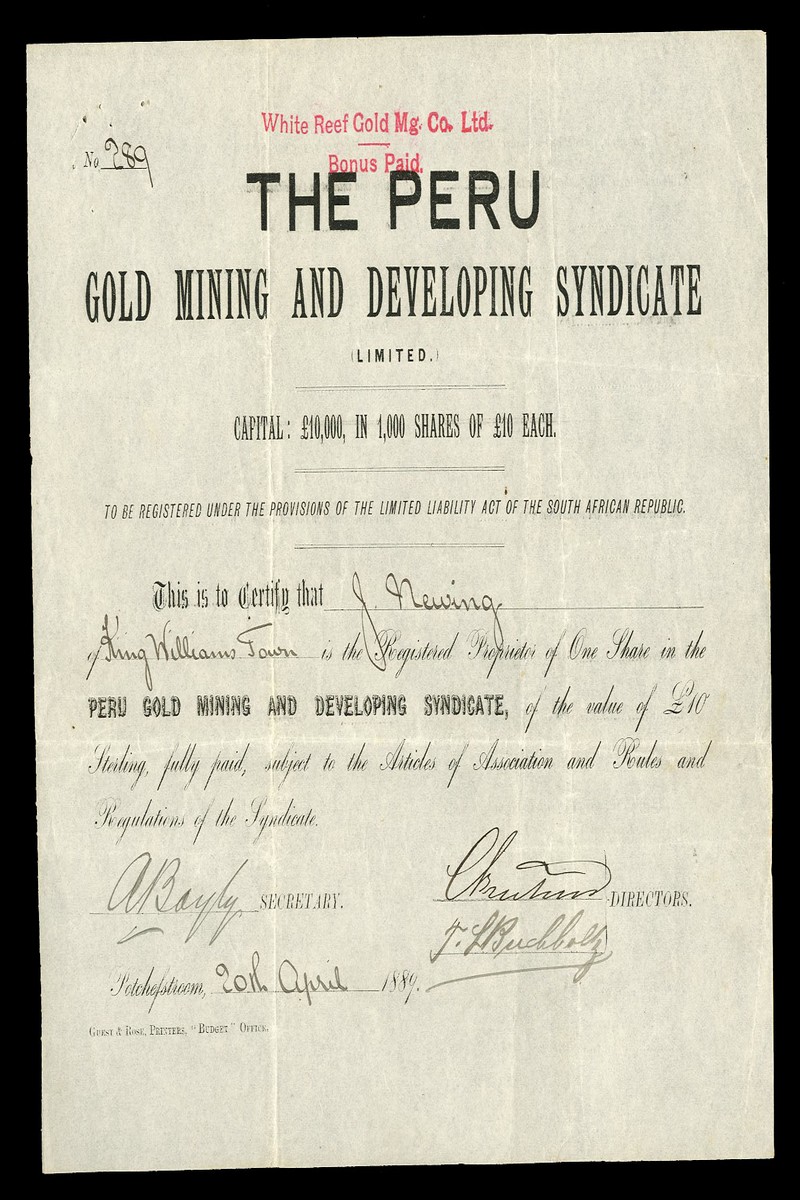 White Reef Gold Mg. Co. Ltd.
Bonus Paid.
No 289
THE PERU
GOLD MINING AND DEVELOPING SYNDICATE
(LIMITED.)
CAPITAL: £10,000, IN 1,000 SHARES OF £10 EACH.
TO BE REGISTERED UNDER THE PROVISIONS OF THE LIMITED LIABILITY ACT OF THE SOUTH AFRICAN REPUBLIC.
This is to Certify that J. Newing
of King Williams Town is the Registered Proprietor of One Share in the
PERU GOLD MINING AND DEVELOPING SYNDICATE, of the value of £10
Sterling, fully paid, subject to the Articles of Association and Rules and
Regulations of the Syndicate.
A Bayly SECRETARY.
DIRECTORS.
T. L Buchholtz
Potchefstroom, 20th April 1889.
GUEST & ROSE, PRINTERS, "BUDGET" OFFICE.